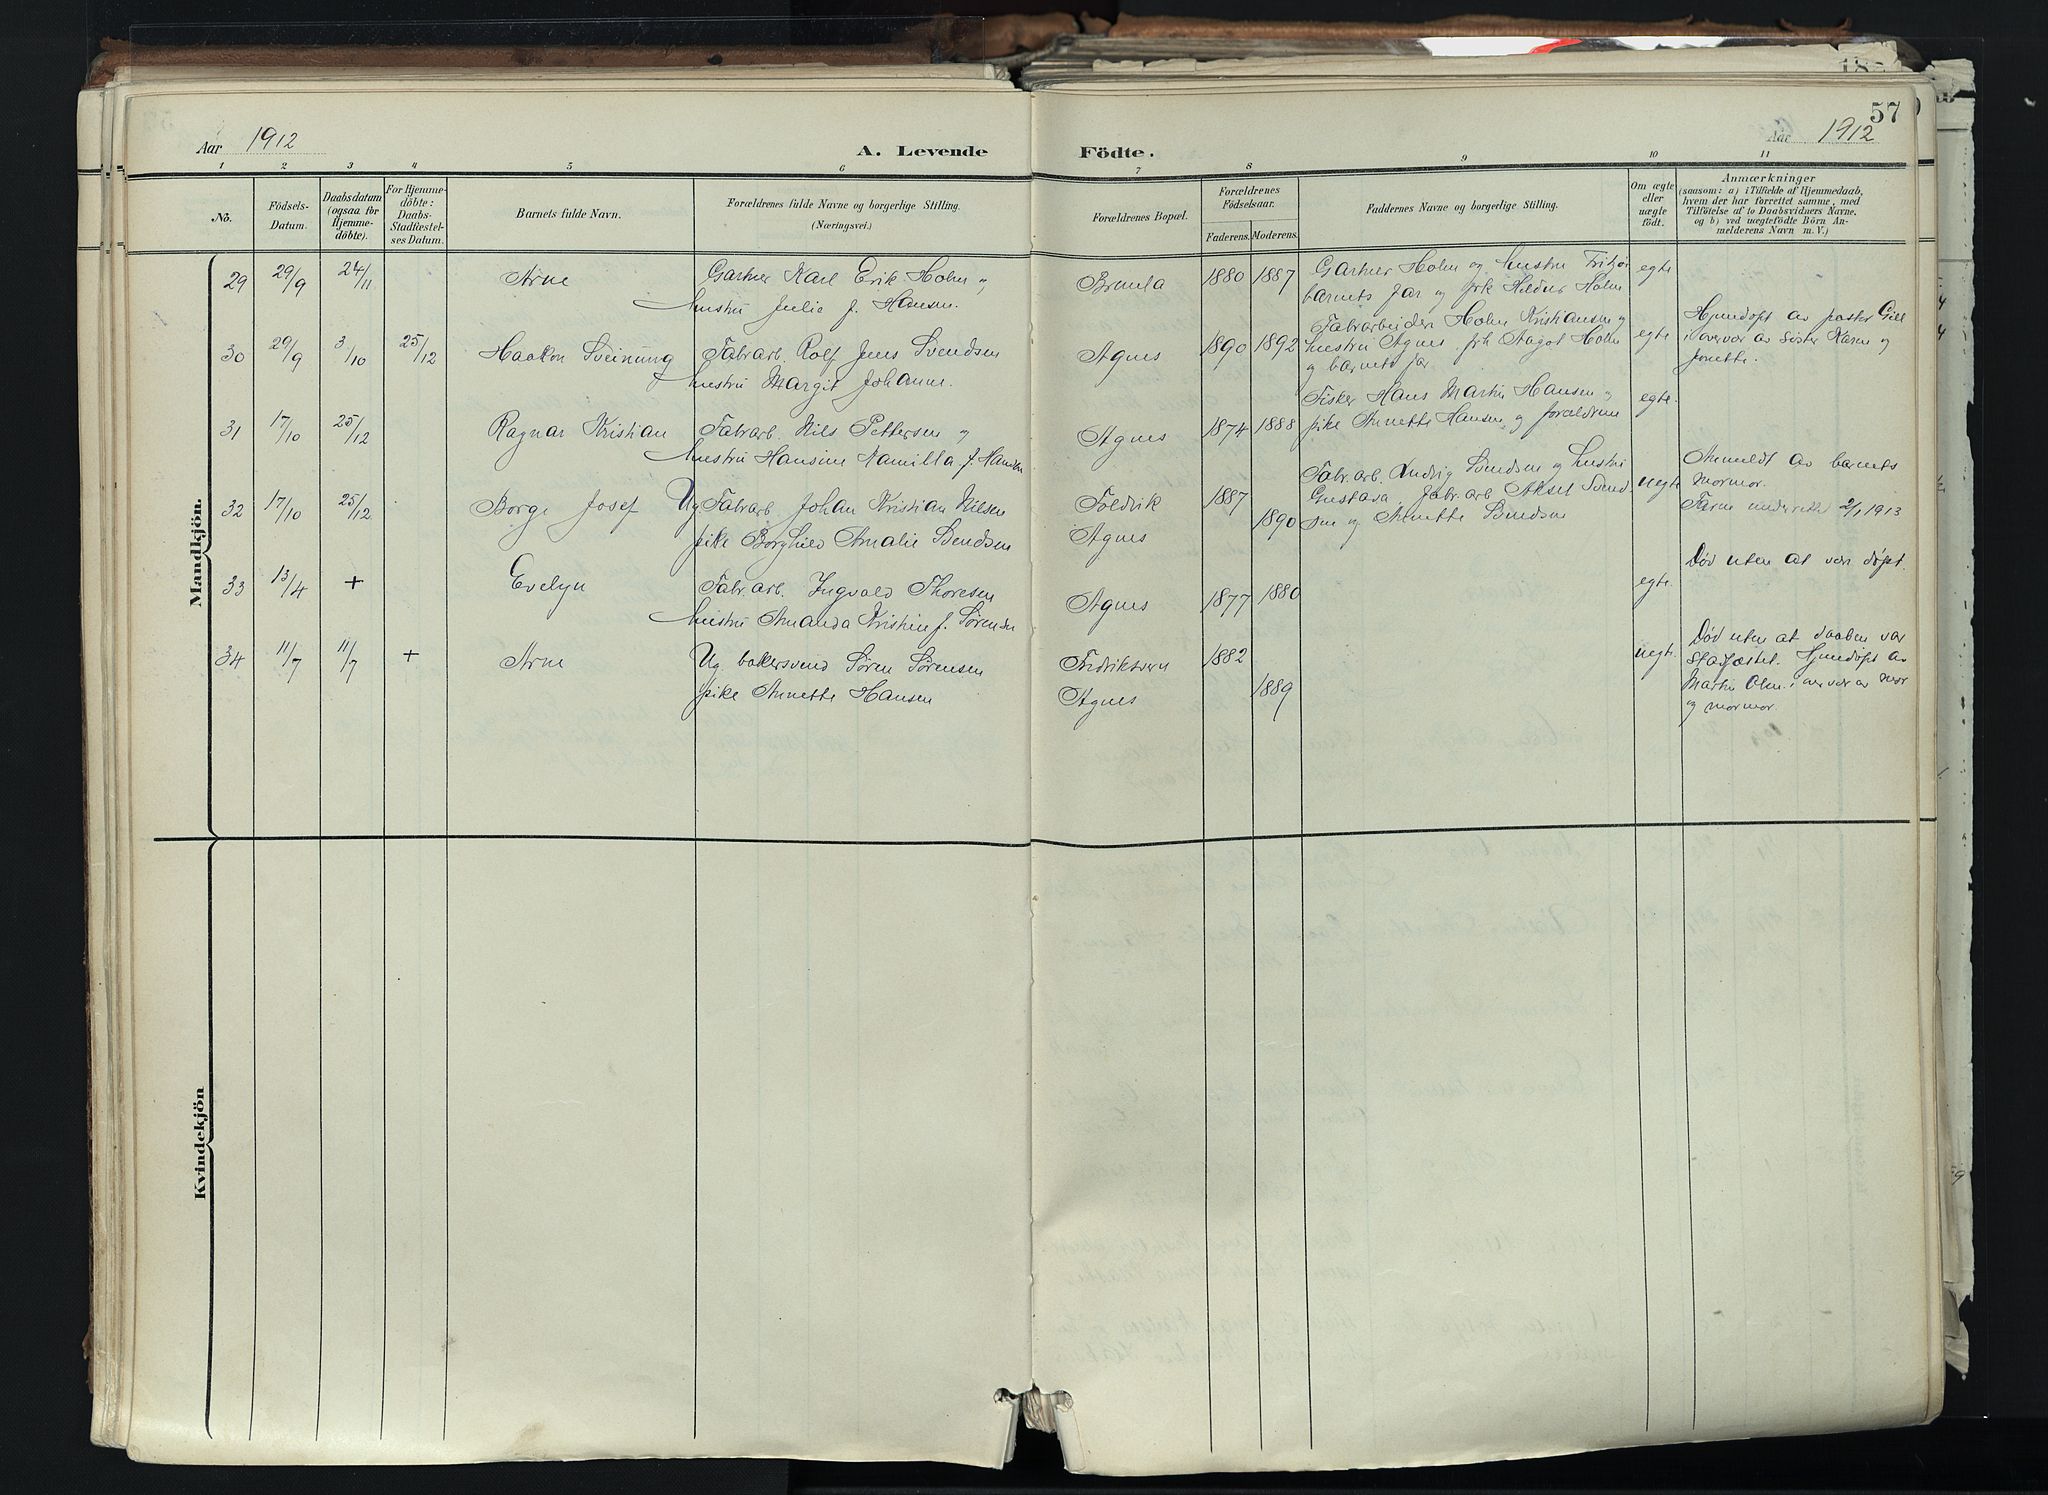 57
Aar 1912
A. Levende Födte.
Aar 1912
1 2 3 4 5 6 7 8 9 10 11
No.
Födsels-
Datum.
Daabsdatum
(ogsaa for
Hjemme-
döbte).
For Hjemme-
döbte:
Daabs-
Stadfæstel-
ses Datum.
Barnets fulde Navn.
Forældrenes fulde Navne og borgerlige Stilling.
(Næringsvei.)
Forældrenes Bopæl.
Forældrenes
Födselsaar.
Faderens. Moderens.
Faddernes Navne og borgerlige Stilling.
Om ægte
eller
uægte
födt.
Anmærkninger
(saasom: a) i Tilfælde af Hjemmedaab,
hvem der har forrettet samme, med
Tilföielse af to Daabsvidners Navne.
og b) ved uægtefödte Börn An-
melderens Navn m. V.)
Mandkjön.
29 29/9 24/11 Arne
Gartner Karl Erik Holm og
hustru Julie f. Hansen.
Brunla 1880 1887
Gartner Holm og hustru
barnets far og frk Holm
egte
30 29/9 3/10 25/12 Haakon Sveinung
Fabrarb. Rolf Jens Svendsen
hustru Margit Johanne.
Agnes 1890 1892
Fabrarbeider Holm Kristiansen og
hustru Agnes, frk Aagot Holm
og barnets far
egte
Hjemdøpt av pastor Gill
i overvær av søster Karen og
31 17/10 25/12 Ragnar Kristian
Fabrarb. Nils Pettersen og
hustru Hansine Kamilla f. Hansen
Agnes 1874 1888
Fisker Hans Martin Hansen og
pike Annette Hansen og forældrene
egte.
32 17/10 25/12 Borge Josef
Ug. Fabrarb Johan Kristian Nilsen
pike Borghild Amalie Svendsen
Foldvik 1887
Agnes 1890
Fabr.arb. Ludvig Svendsen og hustru
Gustava, fabr.arb Aksel Svend-
sen og Annette Svendsen
uegte
Anmeldt av barnets
mormor.
Faren underrettet 2/1 1913
33 13/4 + Evelyn
Fabr.arb. Ingvald Thoresen
hustru Amanda Kristine f. Sørensen
Agnes 1877 1880
egte.
Død uten at være døpt.
34 11/7 11/7 + Arne
Ug. bakersvend Søren Sørensen
pike Annette Hansen
Fredriksværn 1882
Agnes 1889
uegte.
Død uten at daaben var
stadfæstet. Hjemdøpt av
Martin Olsen i overvær av mor
og mormor.
Kvindekjön